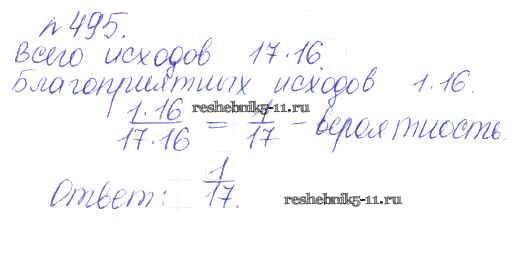 №495.
Всего исходов 17·16.
Благоприятных исходов 1·16.
1·16/17·16 = 1/17 – вероятность.
reshebnik5-11.ru
Ответ: 1/17.
reshebnik5-11.ru